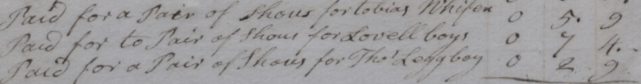 Paid for a Pair of Shous for tobias Whifen 0 5 9
Paid for to Pair of Shous for Lovell boys 0 7 4
Paid for a Pair of Shous for Tho^s Legg boy 0 2 9